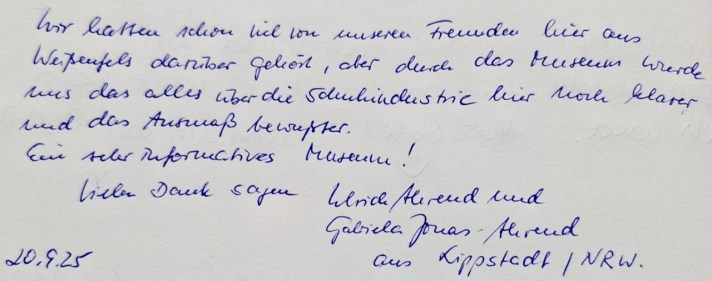 Wir hatten schon viel von unseren Freunden hier aus
Weißenfels darüber gehört, aber durch das Museum wurde
uns das alles über die Schuhindustrie hier noch klarer
und das Ausmaß bewußter.
Ein sehr informatives Museum!
Vielen Dank sagen Ulrich Ahrend und
Gabriela Jonas-Ahrend
aus Lippstadt / NRW.
20.9.25